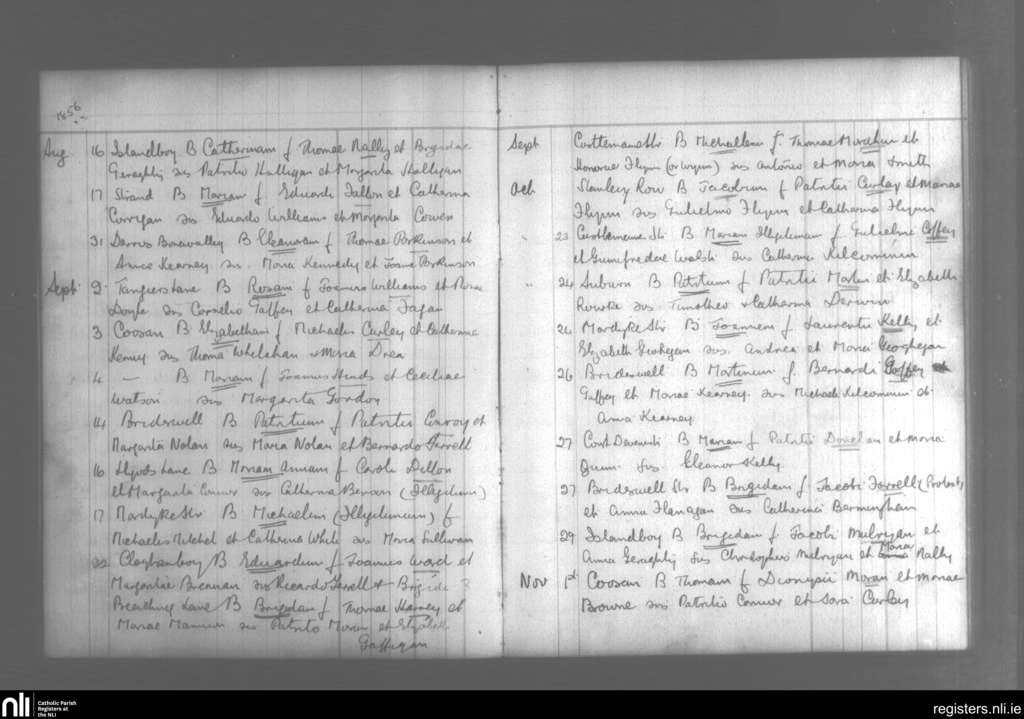 1856
Aug. 16 Islandboy B Catherinam f Thomae Nally et Brigidae
Geraghty sus Patritio Halligan et Margarita Halligan
17 Strand B Mariam f Eduardi Fallon et Catherina
Corrigan sus Eduardo Williams et Margarita Cowen
31 B Eleanoram f Thomae Parkinson et
Kearney sus Maria Kennedy et Parkinson
Sept 2 B Rosam f Joannis Williams et Rosae
Doyle sus Cornelio Gaffey et Catherina Fagan
3 Coosan B Elizabetham f Michaelis Curley et Catherina
Kenny sus Thoma Whelahan & Maria Drea
4 — B Mariam f Joannis Hinds et Ceciliae
Watson sus Margarita Gordon
14 Bridewell B Patritium f Patritii Conroy et
Margarita Nolan sus Maria Nolan et Bernardo Farrell
16 Lane B Mariam Annam f Caroli Dillon
et Margarita Connor sus Catherina Benson (Illegitimam)
17 Mardyke Str B Michaelem (Illegitimum) f
Michaelis Michel et Catherina White sus Maria Sullivan
22 B Eduardum f Joannis Ward et
Margaritae Brennan sus Ricardo Farrell & Brigida
Breathing Lane B Brigidam f Thomae Harney et
Mariae Mannion sus Patritio Moran et
Gaffigan
Sept Castlemaine Str B Michaelem f Thomae et
Honorae Flynn (or Wynn) sus Antonio et Maria Smith
Oct Stanley Row B Jacobum f Patritii Curley et Mariae
Flynn sus Gulielmo Flynn et Catherina Flynn
" 23 Castlemaine Str B Mariam Illegitimam f Gulielmi Coffey
et Walsh sus Catherina Kilcommin
" 24 Auburn B Patritium f Patritii et Elizabeth
Rourke sus Timotheo & Catherina
24 Mardyke Str B Joannem f Laurentii Kelly et
Elizabeth Geohegan sus Andrea et Maria Geoghegan
26 Bridewell B Martinum f Bernardi Gaffey
Gaffey et Mariae Kearney sus Michaele Kilcommin et
Anna Kearney
27 B Mariam f Patritii et Maria
Quinn sus Eleanor Kelly
27 Bridewell Str B Brigidam f Jacobi Farrell (Protest)
et Anna Flanagan sus Catherina Bermingham
29 Islandboy B Brigidam f Jacobi Mulryan et
Anna Geraghty sus Christophero Mulryan et Maria Nally
Nov 1st Coosan B Thomam f Dionysii Moran et Mariae
Browne sus Patritio Connor et Sara Curley
nli
Catholic Parish
Registers at
the NLI
registers.nli.ie